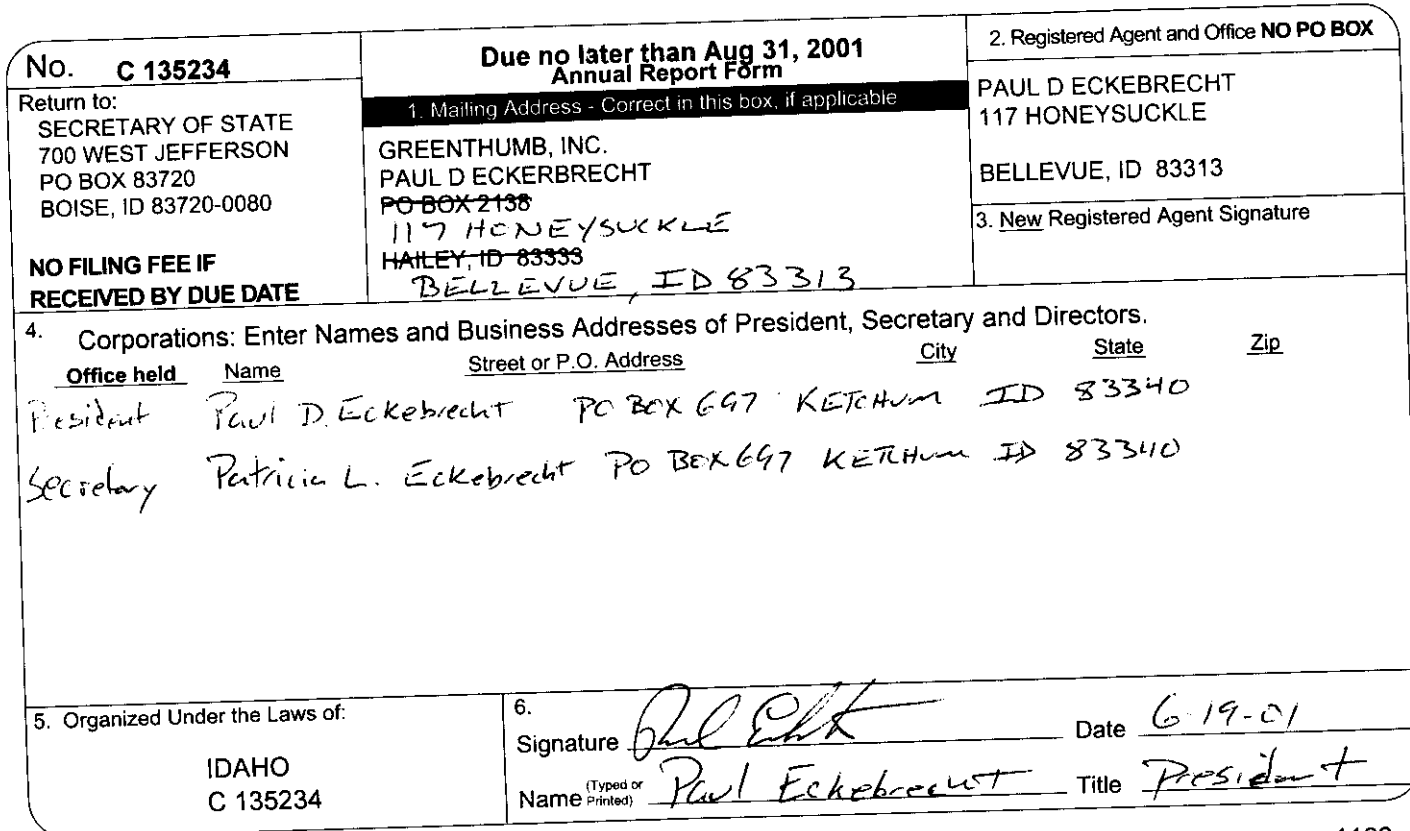 No. C 135234
Return to:
SECRETARY OF STATE
700 WEST JEFFERSON
PO BOX 83720
BOISE, ID 83720-0080
NO FILING FEE IF
RECEIVED BY DUE DATE
Due no later than Aug 31, 2001
Annual Report Form
1. Mailing Address - Correct in this box, if applicable
GREENTHUMB, INC.
PAUL D ECKERBRECHT
PO BOX 2138
117 HONEYSUCKLE
HAILEY, ID 83333
BELLEVUE, ID 83313
2. Registered Agent and Office NO PO BOX
PAUL D ECKEBRECHT
117 HONEYSUCKLE
BELLEVUE, ID 83313
3. New Registered Agent Signature
4. Corporations: Enter Names and Business Addresses of President, Secretary and Directors.
Office held Name Street or P.O. Address City State Zip
President Paul D. Eckebrecht PO BOX 697 KETCHUM ID 83340
Secretary Patricia L. Eckebrecht PO BOX 697 KETCHUM ID 83340
5. Organized Under the Laws of:
IDAHO
C 135234
6.
Signature Date 6-19-01
Name (Typed or Printed) Paul Eckebrecht Title President